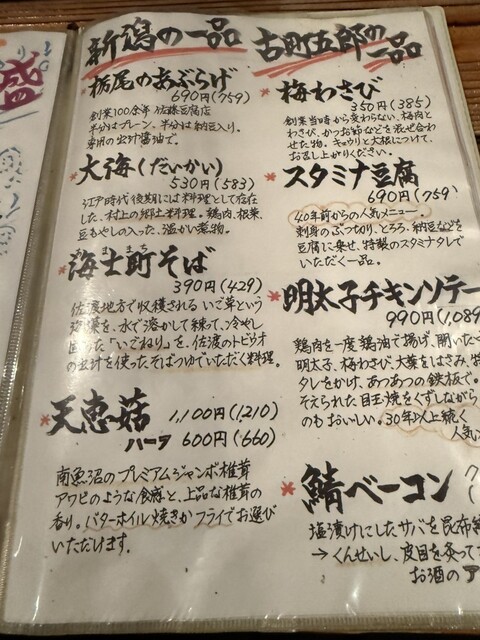 新潟の一品
栃尾のあぶらげ
690円(759)
創業100余年 佐藤豆腐店
半分はプレーン、半分は納豆入り。
専用の出汁醤油で。
大海(だいかい)
530円(583)
江戸時代後期には料理として存在
した、村上の郷土料理。鶏肉、根菜、
豆もやしの入った、温かい煮物。
海士町そば
390円(429)
佐渡地方で収穫される いご草という
海藻を、水で溶かして練って、冷やし
固った「いごねり」を、佐渡のトビウオ
の出汁を使ったそばつゆでいただく料理。
天恵菇
1,100円(1,210)
ハーフ 600円(660)
南魚沼のプレミアムジャンボ椎茸
アワビのような食感と、上品な椎茸の
香り。バターホイル焼きかフライでお選び
いただけます。
古町五郎の一品
梅わさび
350円(385)
創業当時から変わらない、梅肉と
わさび、かつお節などを混ぜ合わ
せた物。キュウリと大根につけて、
お召し上がりください。
スタミナ豆腐
690円(759)
40年前からの人気メニュー。
刺身のぶつ切り、とろろ、納豆などを
豆腐に乗せ、特製のスタミナタレで
いただく一品。
明太子チキンソテー
990円(1,089
鶏肉を一度鶏油で揚げ、開いた
明太子、梅わさび、大葉をはさみ、特
タレをかけ、あつあつの鉄板で。
そえられた目玉焼をくずしながら
のもおいしい。30年以上続く
人気
鯖ベーコン
塩漬けにしたサバを昆布
→くんせいし、皮目を炙って
お酒の
盛